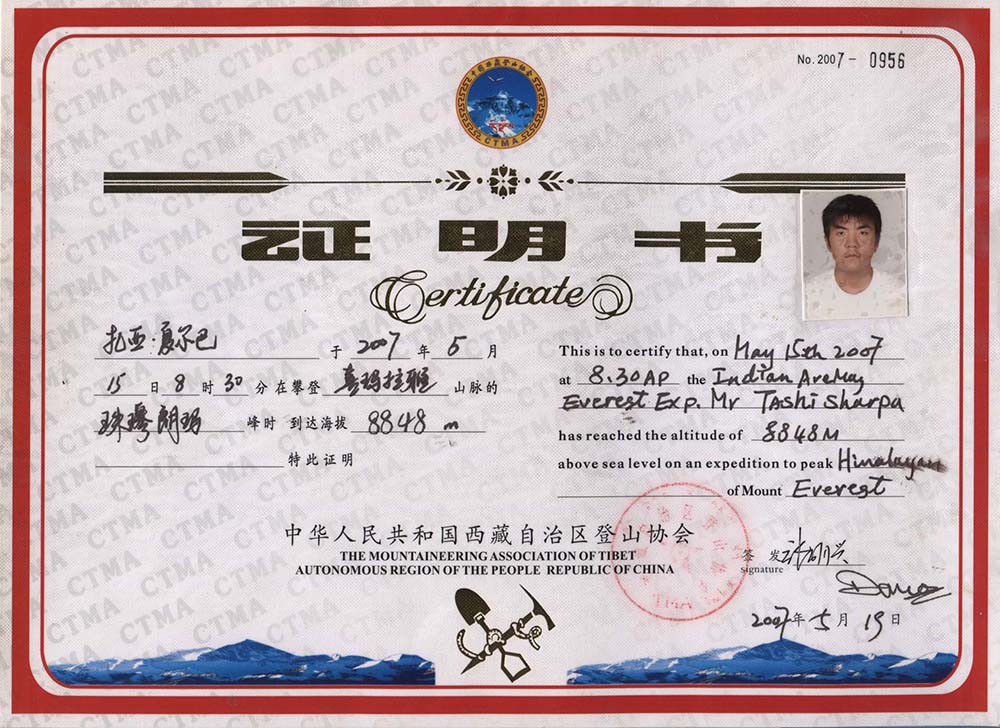 No. 2007 - 0956
中国西藏登山协会
CTMA
证明书
Certificate
扎西·夏尔巴 于 2007 年 5 月
15 日 8 时 30 分在攀登 喜玛拉雅 山脉的
珠穆朗玛 峰时 到达海拔 8848 m
特此证明
This is to certify that, on May 15th 2007
at 8.30AP the Indian AreMay
Everest Exp. Mr TAshi sharpa
has reached the altitude of 8848M
above sea level on an expedition to peak Himalayan
of Mount Everest
中华人民共和国西藏自治区登山协会
THE MOUNTAINEERING ASSOCIATION OF TIBET
AUTONOMOUS REGION OF THE PEOPLE REPUBLIC OF CHINA
签发
signature
2007年5月19日